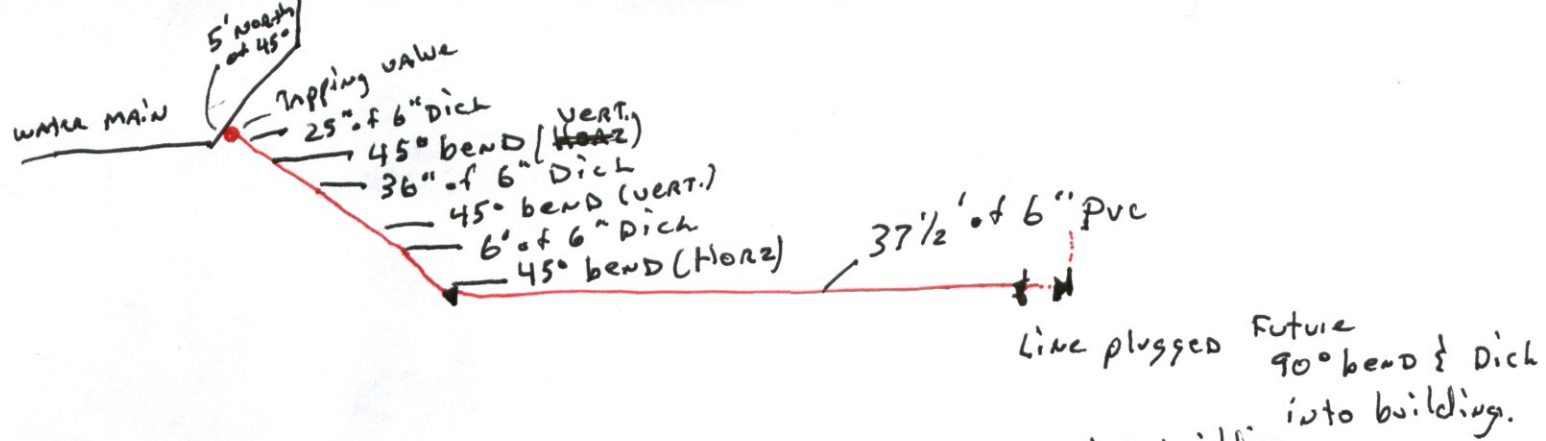 5' North
at 45°
WATER MAIN
Tapping valve
25" of 6" Dich
45° bend (Horz) VERT.
36" of 6" Dich
45° bend (VERT.)
6' of 6" Dich
45° bend (Horz)
37 1/2' of 6" PVC
Line plugged
Future
90° bend & Dich
into building.